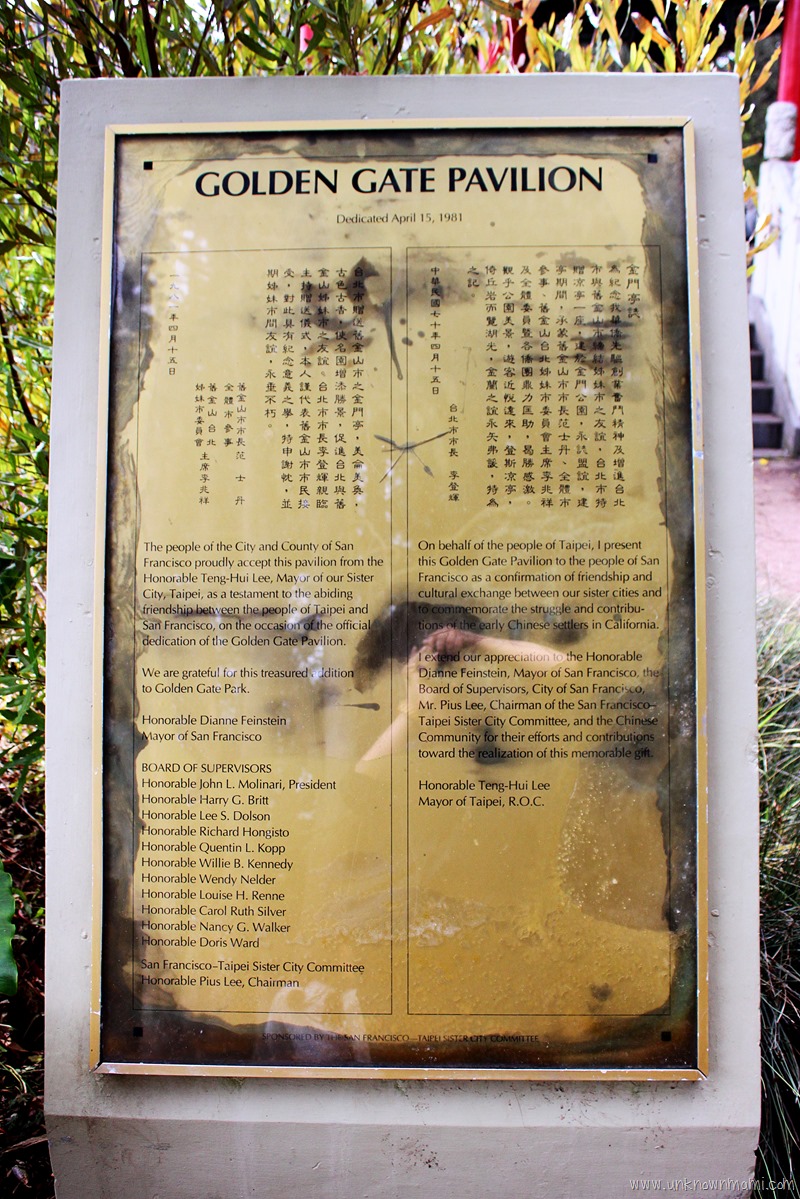 GOLDEN GATE PAVILION
Dedicated April 15, 1981
金門亭誌
為紀念我華僑先驅創業奮鬥精神及增進台北
市與舊金山市締結姊妹市之友誼，台北市特
贈涼亭一座，建於金門公園，永誌盟誼，建
亭期間，承蒙舊金山市市長范士丹、全體市
參事、舊金山台北姊妹市委員會主席李兆祥
及全體委員暨各僑團鼎力匡助，曷勝感激。
觀乎公園美景，遊客近悅遠來，登斯涼亭，
倚丘岩而覽湖光，金蘭之誼永矢弗諼，特為
之記。
台北市市長 李登輝
中華民國七十年四月十五日
台北市贈送舊金山市之金門亭，美侖美奐，
古色古香，使名園增添勝景，促進台北與舊
金山姊妹市之友誼。台北市市長李登輝親臨
主持贈送儀式，本人謹代表舊金山市市民接
受，對此具有紀念意義之舉，特申謝忱，並
期姊妹市間友誼，永垂不朽。
舊金山市市長范士丹
全體市參事
舊金山台北
姊妹市委員會 主席李兆祥
一九八一年四月十五日
The people of the City and County of San
Francisco proudly accept this pavilion from the
Honorable Teng-Hui Lee, Mayor of our Sister
City, Taipei, as a testament to the abiding
friendship between the people of Taipei and
San Francisco, on the occasion of the official
dedication of the Golden Gate Pavilion.
We are grateful for this treasured addition
to Golden Gate Park.
Honorable Dianne Feinstein
Mayor of San Francisco
BOARD OF SUPERVISORS
Honorable John L. Molinari, President
Honorable Harry G. Britt
Honorable Lee S. Dolson
Honorable Richard Hongisto
Honorable Quentin L. Kopp
Honorable Willie B. Kennedy
Honorable Wendy Nelder
Honorable Louise H. Renne
Honorable Carol Ruth Silver
Honorable Nancy G. Walker
Honorable Doris Ward
San Francisco–Taipei Sister City Committee
Honorable Pius Lee, Chairman
On behalf of the people of Taipei, I present
this Golden Gate Pavilion to the people of San
Francisco as a confirmation of friendship and
cultural exchange between our sister cities and
to commemorate the struggle and contribu-
tions of the early Chinese settlers in California.
I extend our appreciation to the Honorable
Dianne Feinstein, Mayor of San Francisco, the
Board of Supervisors, City of San Francisco,
Mr. Pius Lee, Chairman of the San Francisco–
Taipei Sister City Committee, and the Chinese
Community for their efforts and contributions
toward the realization of this memorable gift.
Honorable Teng-Hui Lee
Mayor of Taipei, R.O.C.
SPONSORED BY THE SAN FRANCISCO—TAIPEI SISTER CITY COMMITTEE
www.unknownmomi.com